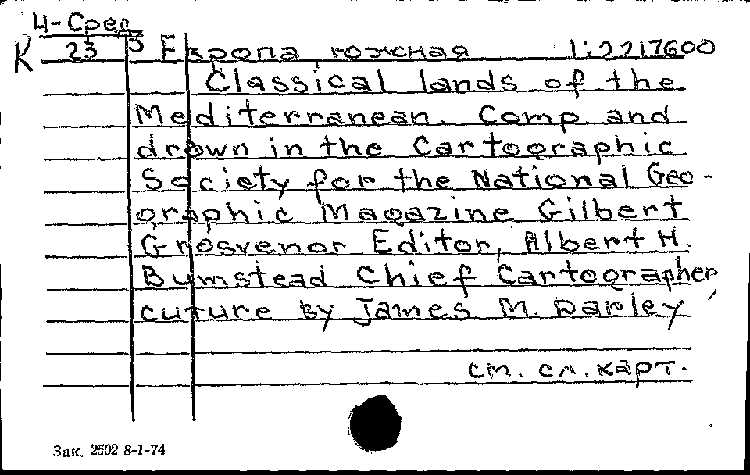 Ц-Сред
К 23 5 Европа южная 1:2217600
Classical lands of the
Mediterranean. Comp and
drawn in the Cartographic
Society for the National Geo-
graphic Magazine Gilbert
Grosvenor Editor, Albert H.
Bumstead Chief Cartographer,
cuture by James M. Darley
см. сл. карт.
Зак. 2502 8-1-74